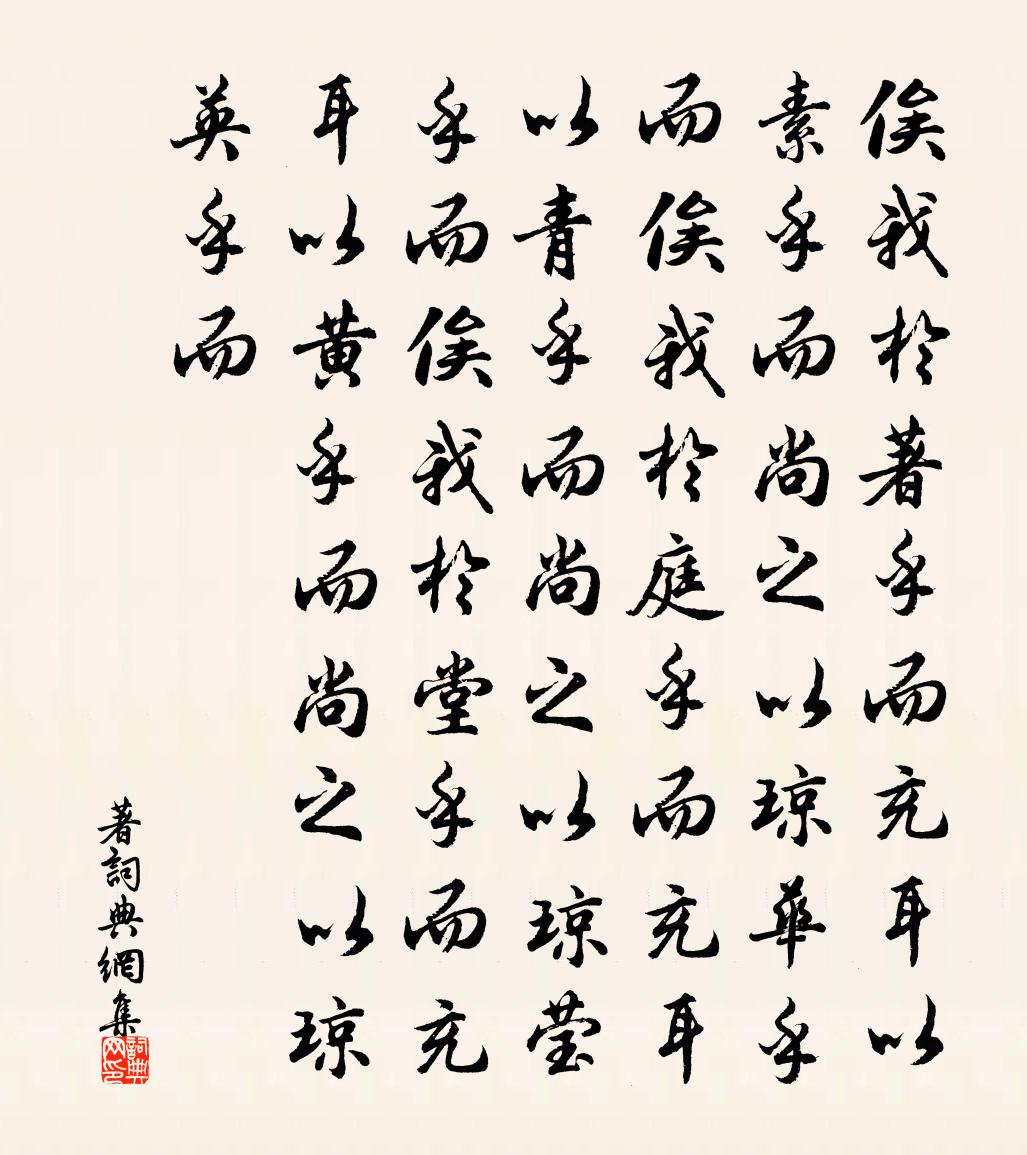 俟我於著乎而充耳以
素乎而尚之以琼華乎
而俟我於庭乎而充耳
以青乎而尚之以琼莹
乎而俟我於堂乎而充
耳以黄乎而尚之以琼
英乎而
著詞典網集
詞典
网印